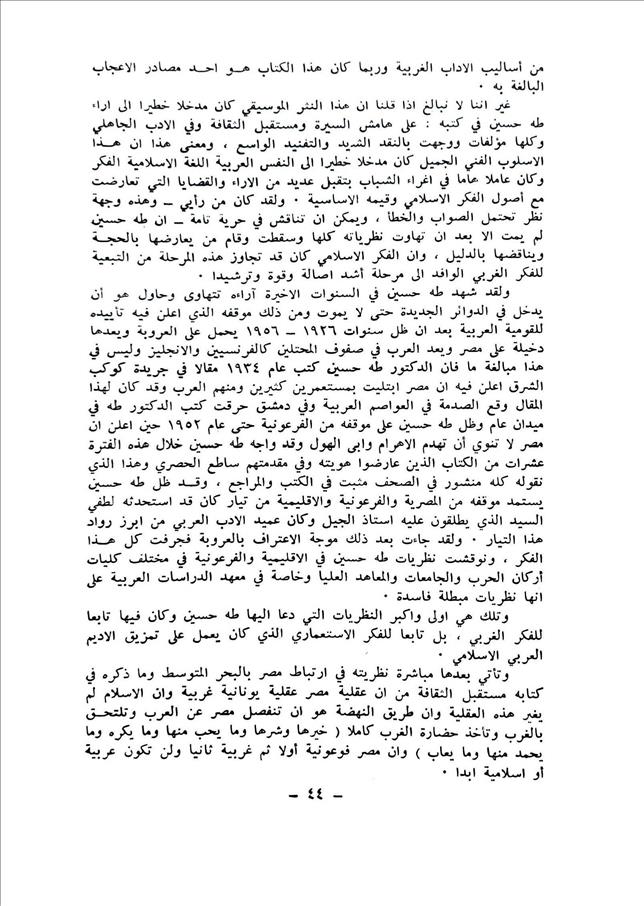 من أساليب الاداب الغربية وربما كان هذا الكتاب هــو احـد مصادر الاعجاب
البالغة به ٠
غير اننا لا نبالغ اذا قلنا ان هذا النثر الموسيقي كان مدخلا خطيرا الى اراء
طه حسين في كتبه : على هامش السيرة ومستقبل الثقافة وفي الادب الجاهلي
وكلها مؤلفات ووجهت بالنقد الشديد والتفنيد الواسع ، ومعنى هذا ان هـــذا
الاسلوب الفني الجميل كان مدخلا خطيرا الى النفس العربية اللغة الاسلامية الفكر
وكان عاملا هاما في اغراء الشباب بتقبل عديد من الاراء والقضايا التي تعارضت
مع أصول الفكر الاسلامي وقيمه الاساسية ٠ ولقد كان من رأيي ــ وهذه وجهة
نظر تحتمل الصواب والخطأ ، ويمكن ان تناقش في حرية تامة ــ ان طه حسين
لم يمت الا بعد ان تهاوت نظرياته كلها وسقطت وقام من يعارضها بالحجـة
ويناقضها بالدليل ، وان الفكر الاسلامي كان قد تجاوز هذه المرحلة من التبعية
للفكر الغربي الوافد الى مرحلة أشد اصالة وقوة وترشيدا ٠
ولقد شهد طه حسين في السنوات الاخيرة آراءه تتهاوى وحاول هو أن
يدخل في الدوائر الجديدة حتى لا يموت ومن ذلك موقفه الذي اعلن فيه تأييده
للقومية العربية بعد ان ظل سنوات ١٩٢٦ ــ ١٩٥٦ يحمل على العروبة ويعدها
دخيلة على مصر ويعد العرب في صفوف المحتلين كالفرنسيين والانجليز وليس في
هذا مبالغة ما فان الدكتور طه حسين كتب عام ١٩٣٤ مقالا في جريدة كوكب
الشرق اعلن فيه ان مصر ابتليت بمستعمرين كثيرين ومنهم العرب وقد كان لهذا
المقال وقع الصدمة في العواصم العربية وفي دمشق حرقت كتب الدكتور طه في
ميدان عام وظل طه حسين على موقفه من الفرعونية حتى عام ١٩٥٢ حين اعلن ان
مصر لا تنوي أن تهدم الاهرام وابى الهول وقد واجه طه حسين خلال هذه الفترة
عشرات من الكتاب الذين عارضوا هويته وفي مقدمتهم ساطع الحصري وهذا الذي
نقوله كله منشور في الصحف مثبت في الكتب والمراجع ، وقــد ظل طه حسين
يستمد موقفه من المصرية والفرعونية والاقليمية من تيار كان قد استحدثه لطفي
السيد الذي يطلقون عليه استاذ الجيل وكان عميد الادب العربي من ابرز رواد
هذا التيار ٠ ولقد جاءت بعد ذلك موجة الاعتراف بالعروبة فجرفت كل هــذا
الفكر ، ونوقشت نظريات طه حسين في الاقليمية والفرعونية في مختلف كليات
أركان الحرب والجامعات والمعاهد العليا وخاصة في معهد الدراسات العربية على
انها نظريات مبطلة فاسدة ٠
وتلك هي اولى واكبر النظريات التي دعا اليها طه حسين وكان فيها تابعا
للفكر الغربي ، بل تابعا للفكر الاستعماري الذي كان يعمل على تمزيق الاديم
العربي الاسلامي ٠
وتأتي بعدها مباشرة نظريته في ارتباط مصر بالبحر المتوسط وما ذكره في
كتابه مستقبل الثقافة من ان عقلية مصر عقلية يونانية غربية وان الاسلام لم
يغير هذه العقلية وان طريق النهضة هو ان تنفصل مصر عن العرب وتلتحـق
بالغرب وتأخذ حضارة الغرب كاملا ( خيرها وشرها وما يحب منها وما يكره وما
يحمد منها وما يعاب ) وان مصر فوعونية أولا ثم غربية ثانيا ولن تكون عربية
أو اسلامية ابدا ٠
– ٤٤ –